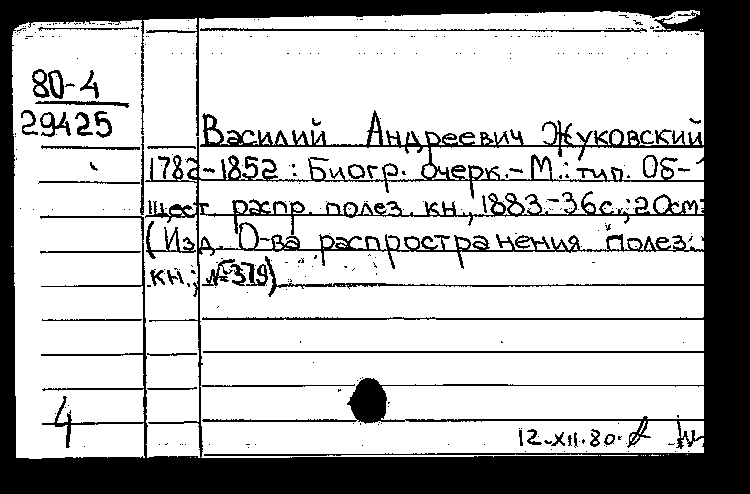 80-4
29425
Василий Андреевич Жуковский
1782-1852 : Биогр. очерк.- М.: тип. Об-
щест. распр. полез. кн., 1883.-36с.; 20см.
(Изд. О-ва распространения полез.
кн.; №379)
4
12.XII.80.